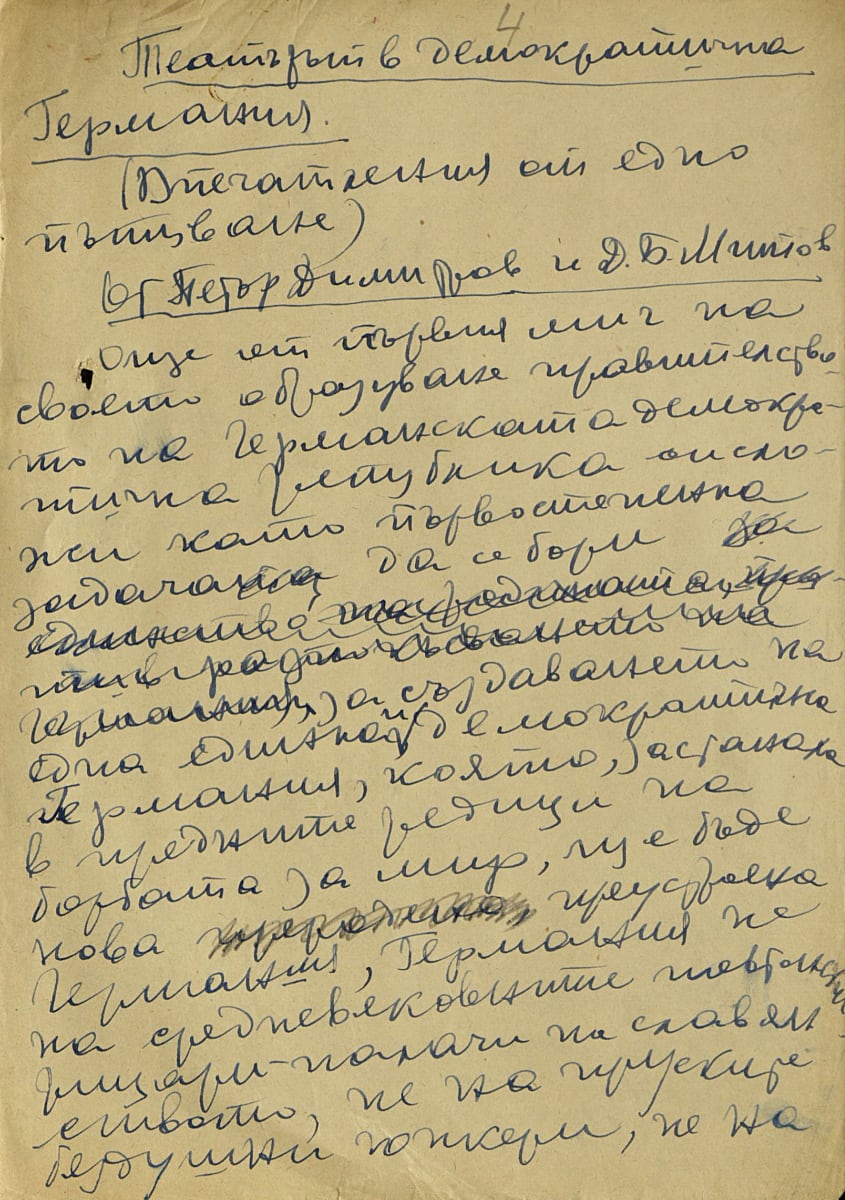 4
Театърът в демократична
Германия.
(Впечатления от едно
пътуване)
От Петър Димитров и Д.Б.Митов
Още от първия миг на
своето образуване правителство-
то на Германската демокра-
тична република си сло-
жи като първостепенна
задача да се бори за
единство
на
Германия, за създаването на
една единна и демократична
Германия, която, застанала
в предните редици на
борбата за мир, ще бъде
нова преродена, преустроена
Германия, Германия не
на средневековните тевтонски
рицари-палачи на славян
ството, не на пруските
бездушни юнкери, не на